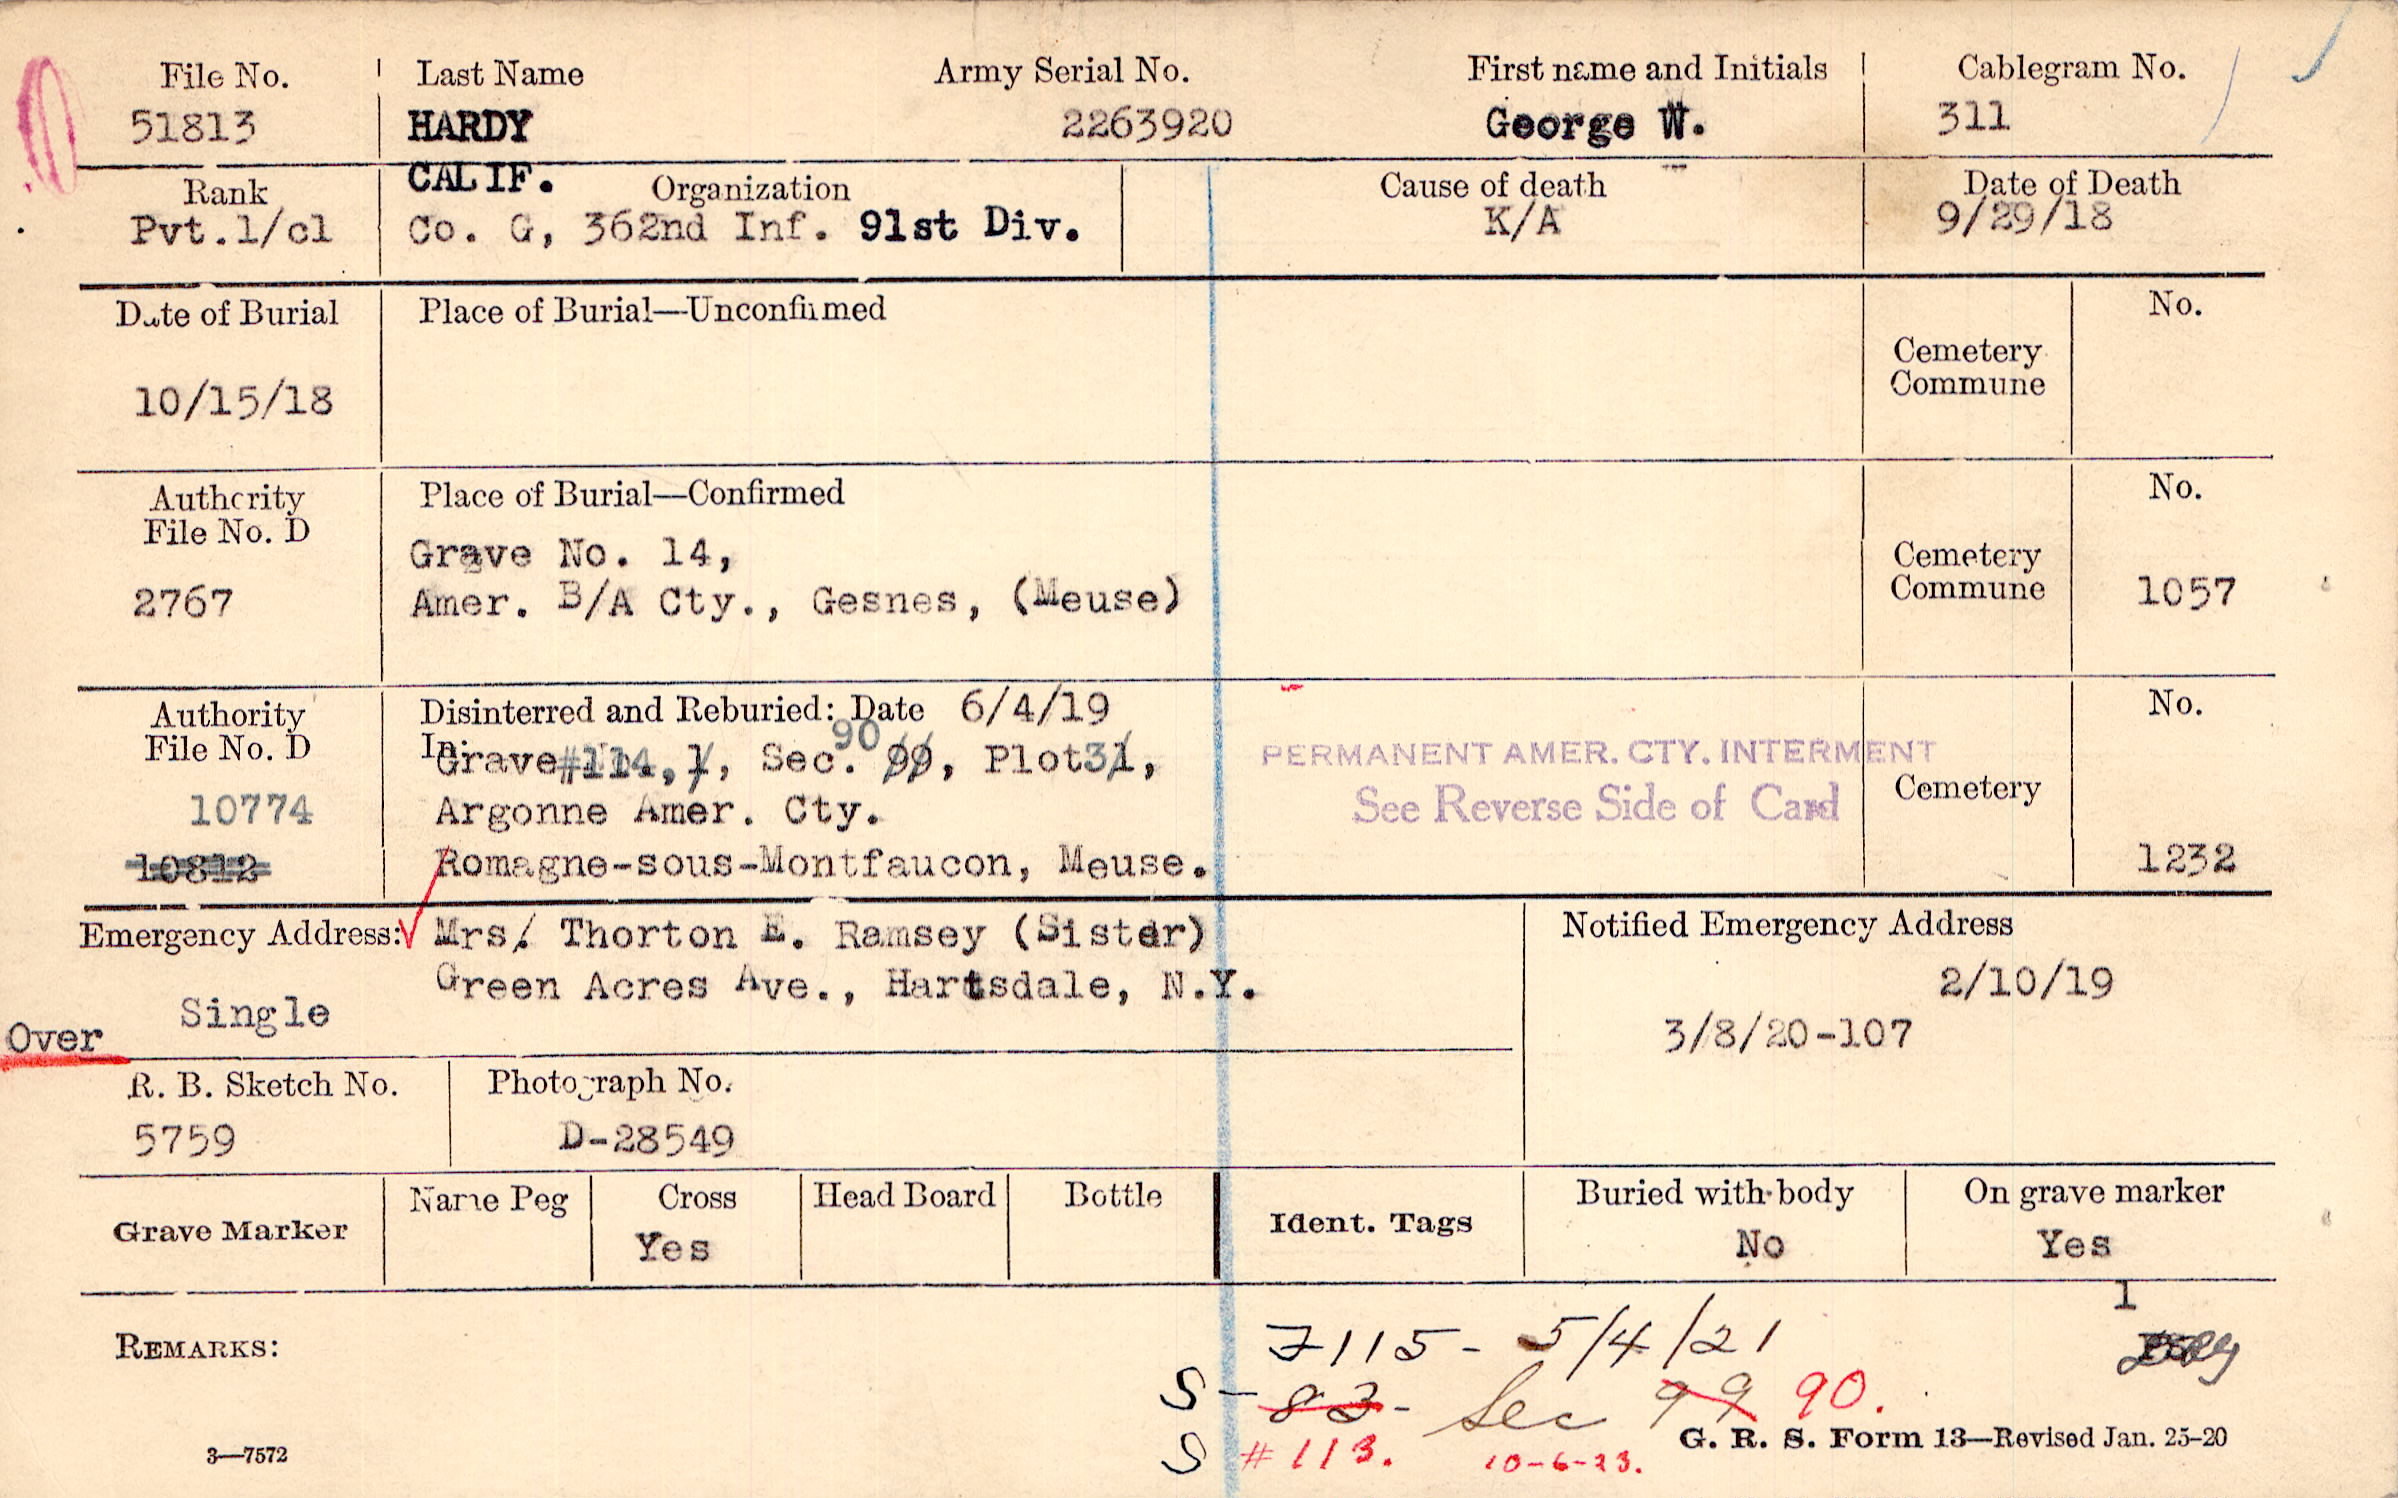 File No. Last Name Army Serial No. First name and Initials Cablegram No.
51813 HARDY 2263920 George W. 311
CALIF.
Rank Organization Cause of death Date of Death
Pvt.1/cl Co. G, 362nd Inf. 91st Div. K/A 9/29/18
Date of Burial Place of Burial—Unconfirmed No.
Cemetery
Commune
10/15/18
Authority Place of Burial—Confirmed No.
File No. D
Grave No. 14, Cemetery
2767 Amer. B/A Cty., Gesnes, (Meuse) Commune 1057
Authority Disinterred and Reburied: Date 6/4/19 No.
File No. D In: 90
Grave #114, 1, Sec. 99, Plot 31, PERMANENT AMER. CTY. INTERMENT
10774 Argonne Amer. Cty. See Reverse Side of Card Cemetery
10812 Romagne-sous-Montfaucon, Meuse. 1232
Emergency Address: Mrs. Thorton E. Ramsey (Sister) Notified Emergency Address
Green Acres Ave., Hartsdale, N.Y. 2/10/19
Single
Over 3/8/20-107
R. B. Sketch No. Photograph No.
5759 D-28549
Grave Marker Name Peg Cross Head Board Bottle Ident. Tags Buried with body On grave marker
Yes No Yes
1
REMARKS: 7115- 5/4/21
S - 83- Sec 99 90.
S #113. 10-6-23.
3—7572 G. R. S. Form 13—Revised Jan. 25-20